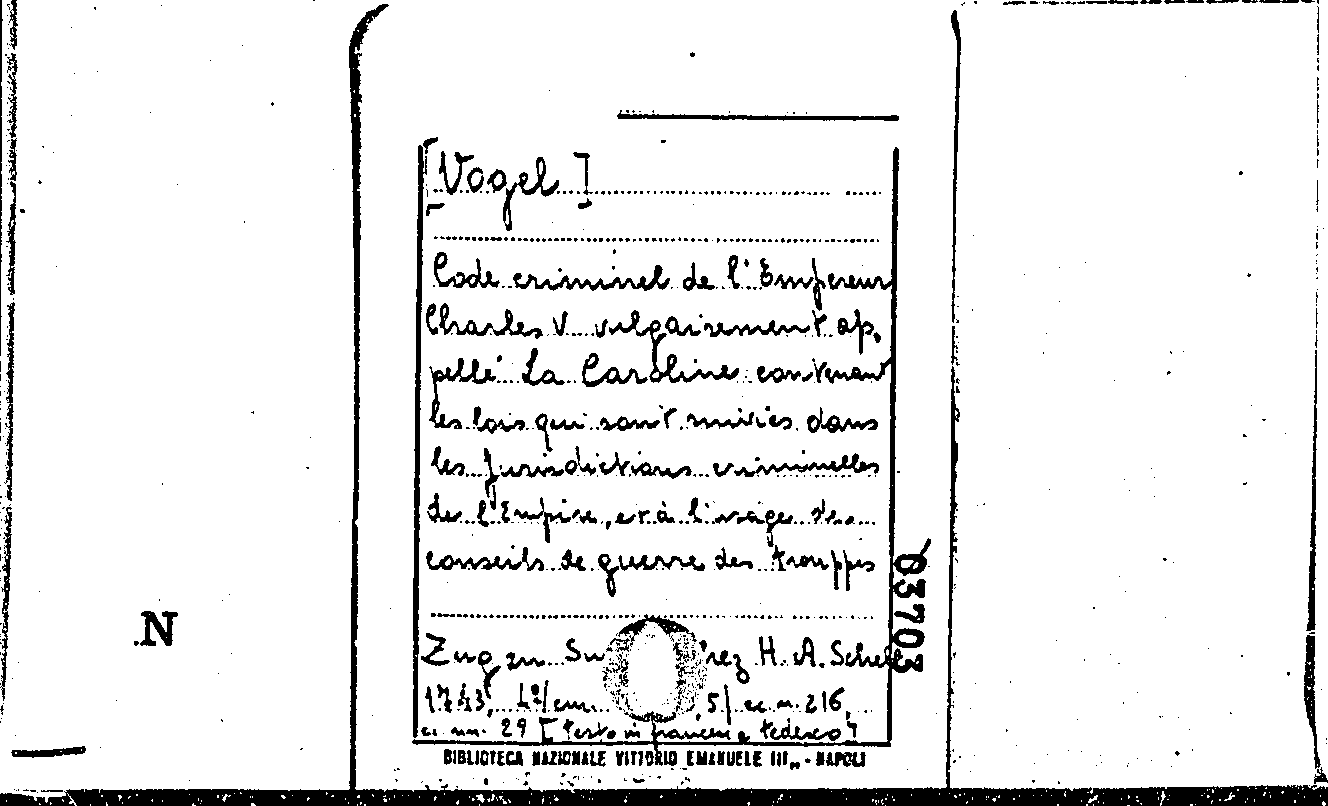 [Vogel]
Code criminel de l'Empereur
Charles V vulgairement ap,
pellé La Caroline contenant
les lois qui sont suivies dans
les Jurisdictions criminelles
de l'Empire, et à l'usage des
conseils de guerre des trouppes
Zug zu Su rez H. A. Schel
1743, 4º/cm. ,5/ cc n. 216,
c. nn. 29 [testo in francese e tedesco]
BIBLIOTECA NAZIONALE VITTORIO EMANUELE III„ - NAPOLI
63703
N